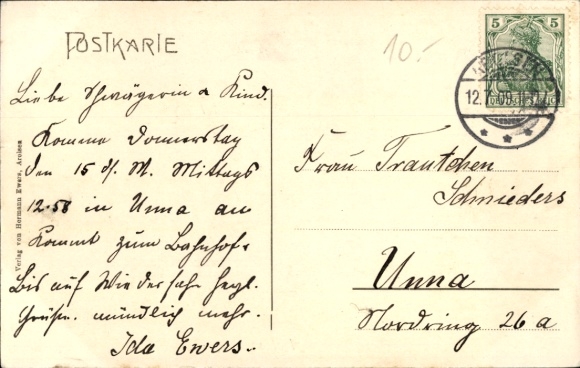 POSTKARTE
10.-
5
AROLSEN
12.7.09.11-12
DEUTSCHES REICH
Liebe Schwägerin u Kind.
Komme Donnerstag
den 15 ds. M. Mittags
12.58 in Unna an
Kommt zum Bahnhof.
Bis auf Wiedersehn herzl.
Grüße. mündlich mehr.
Ida Ewers.
Verlag von Hermann Ewers, Arolsen
Frau Trautchen
Schnieders
Unna
Nordring 26 a